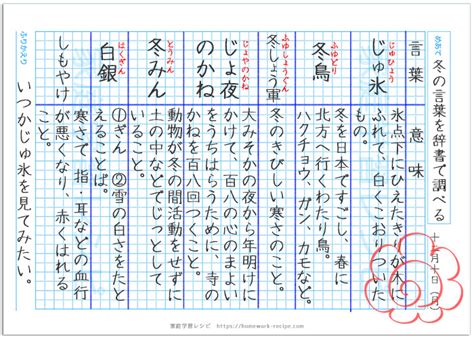 めあて
冬の言葉を辞書で調べる
月十日(月)
言葉
意味
じゅひょう
じゅ氷
氷点下にひえたきりが木に
ふれて、白くこおりついた
もの。
ふゆどり
冬鳥
冬を日本ですごし、春に
北方へ行くわたり鳥。
ハクチョウ、ガン、カモなど。
ふゆしょうぐん
冬しょう軍
冬のきびしい寒さのこと。
じょやのかね
じょ夜
のかね
大みそかの夜から年明けに
かけて、百八の心のまよい
をうちはらうために、寺の
かねを百八回つくこと。
とうみん
冬みん
動物が冬の間活動をせずに
土の中などでじっとして
いること。
はくぎん
白銀
①ぎん ②雪の白さをたと
えることば。
しもやけ
寒さで指・耳などの血行
が悪くなり、赤くはれる
こと。
ふりかえり
いつかじゅ氷を見てみたい。
家庭学習レシピ https://homework-recipe.com/